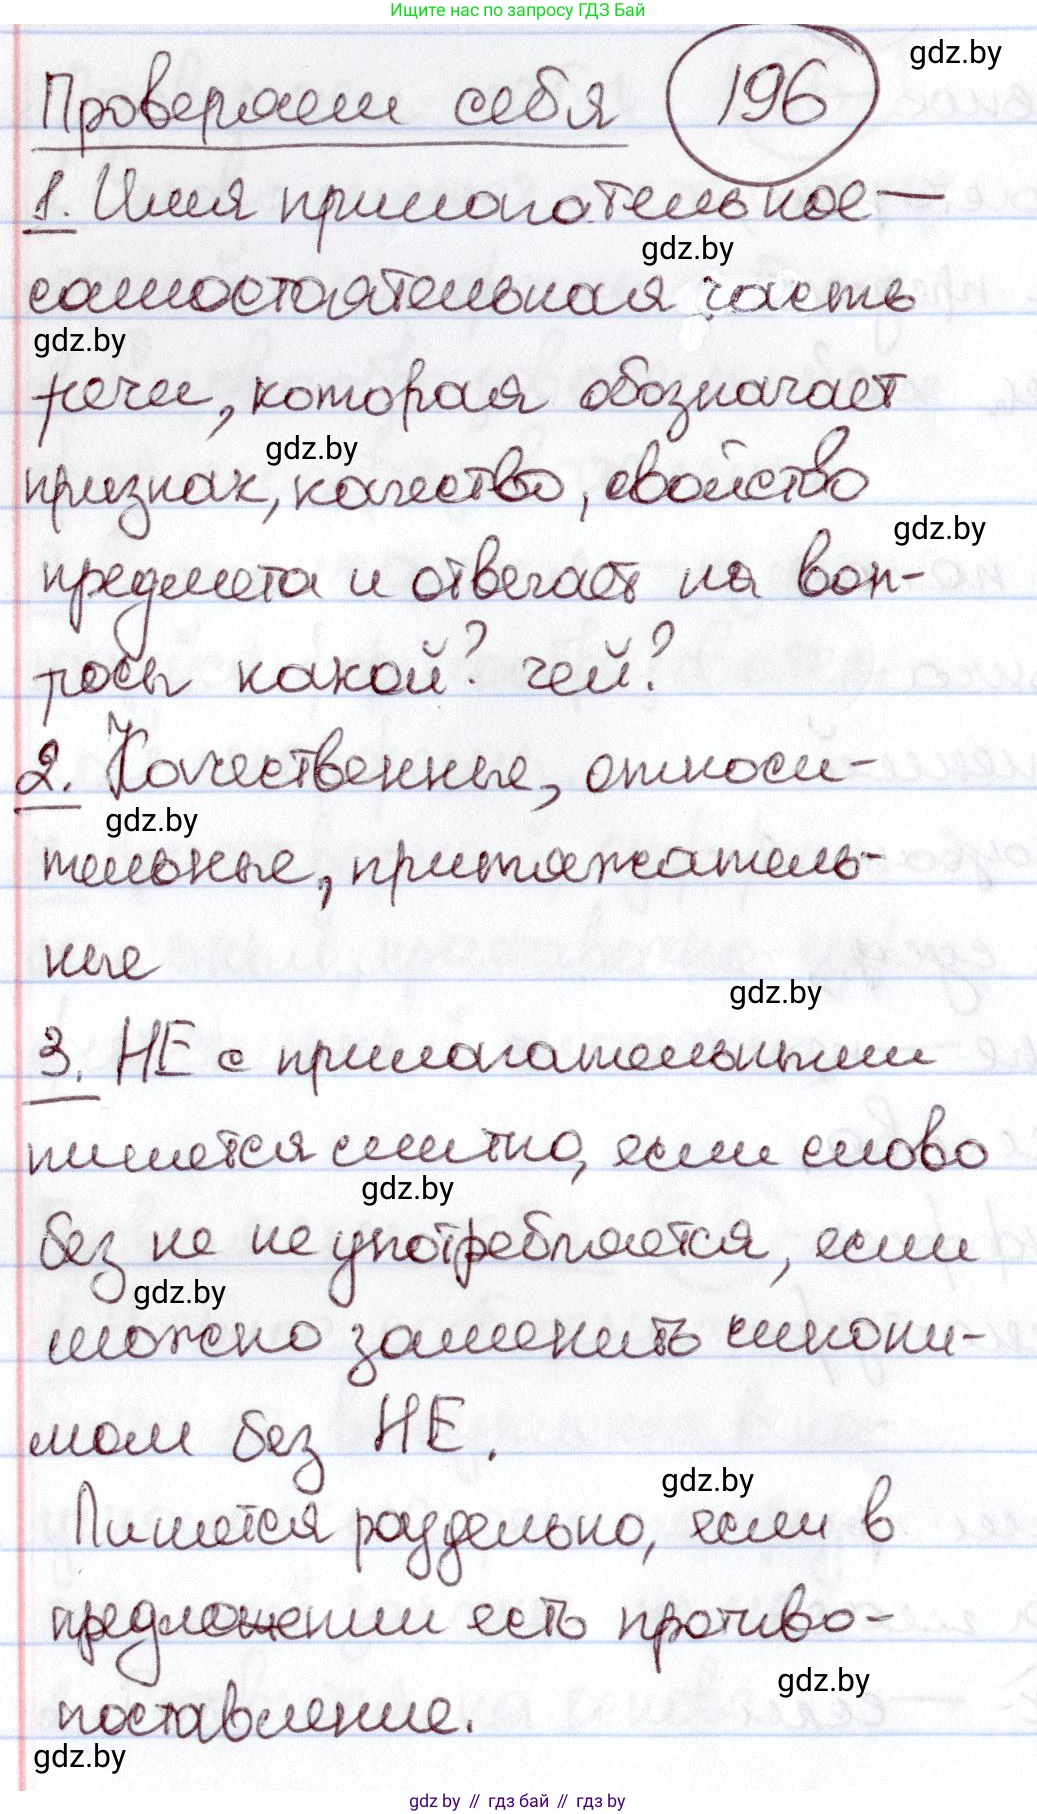 Ищите нас по запросу ГДЗ Бай
gdz.by
Проверяем себя 196
1. Имя прилагательное —
gdz.by
самостоятельная часть
gdz.by
речи, которая обозначает
gdz.by
признак, качество, свойство
gdz.by
предмета и отвечает на воп-
росы какой? чей?
2. Качественные, относи-
gdz.by
тельные, притяжатель-
ные
gdz.by
3. НЕ с прилагательными
пишется слитно, если слово
gdz.by
без не не употребляется, если
gdz.by
можно заменить синони-
мом без НЕ.
gdz.by
Пишется раздельно, если в
предложении есть противо-
gdz.by
поставление.
gdz.by
gdz.by // гдз бай // гдз by